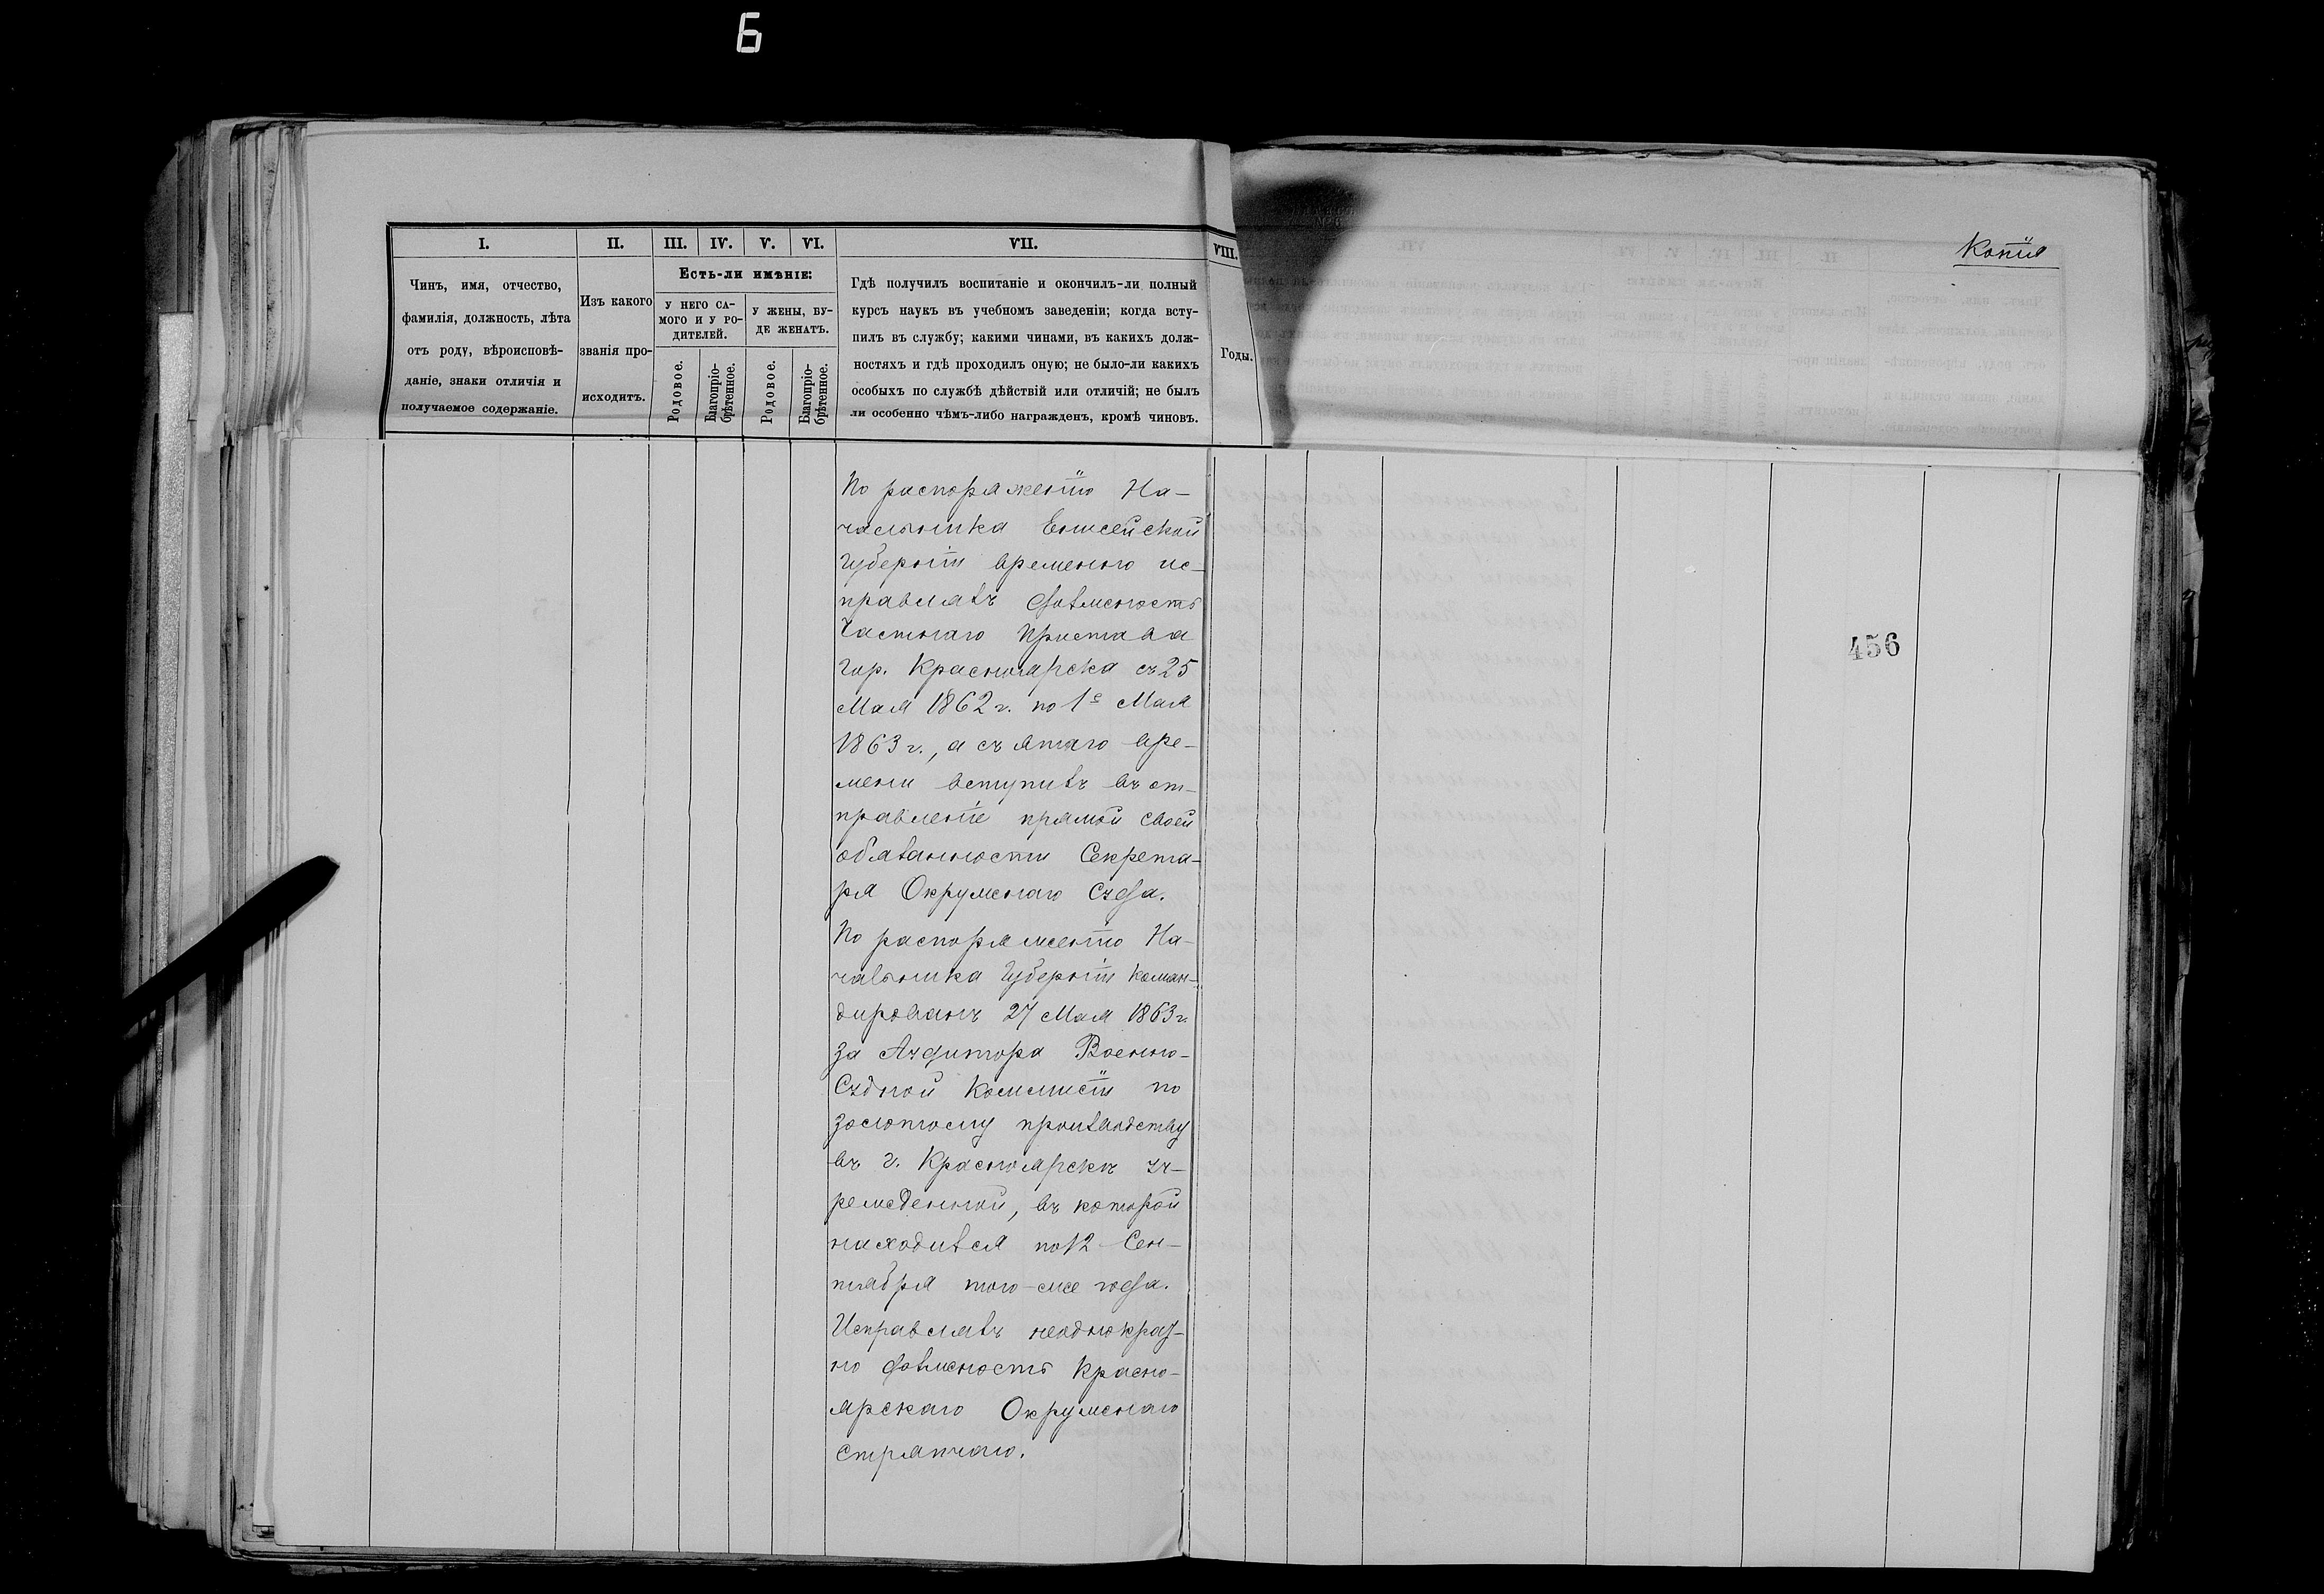 6
I.
Чинъ, имя, отчество,
фамилія, должность, лѣта
отъ роду, вѣроисповѣ-
даніе, знаки отличія и
получаемое содержаніе.
II.
Изъ какого
званія про-
исходитъ.
III. IV. V. VI.
Есть-ли имѣніе:
У НЕГО СА-
МОГО И У РО-
ДИТЕЛЕЙ.
У ЖЕНЫ, БУ-
ДЕ ЖЕНАТЪ.
Родовое.
Благопріо-
брѣтенное.
Родовое.
Благопріо-
брѣтенное.
VII.
Гдѣ получилъ воспитаніе и окончилъ-ли полный
курсъ наукъ въ учебномъ заведеніи; когда всту-
пилъ въ службу; какими чинами, въ какихъ долж-
ностяхъ и гдѣ проходилъ оную; не было-ли какихъ
особыхъ по службѣ дѣйствій или отличій; не былъ
ли особенно чѣмъ-либо награжденъ, кромѣ чиновъ.
VIII.
Годы.
По распоряженію На-
чальника Енисейской
Губерніи временно ис-
правлялъ должность
Частнаго Пристава
гор. Красноярска съ 25
Мая 1862 г. по 1е Мая
1863 г., а съ этаго вре-
мени вступилъ въ от-
правленіе прямой своей
обязанности Секрета-
ря Окружнаго Суда.
По распоряженію На-
чальника Губерніи коман-
дированъ 27 Мая 1863 г.
за Аудитора Военно-
Судной Коммисіи по
золотому производству
въ г. Красноярскѣ уч-
режденной, въ которой
находился по 12 Сен-
тября того-же года.
Исправлялъ неоднократ-
но должность Красно-
ярскаго Окружнаго
Стряпчаго.
Копія
456